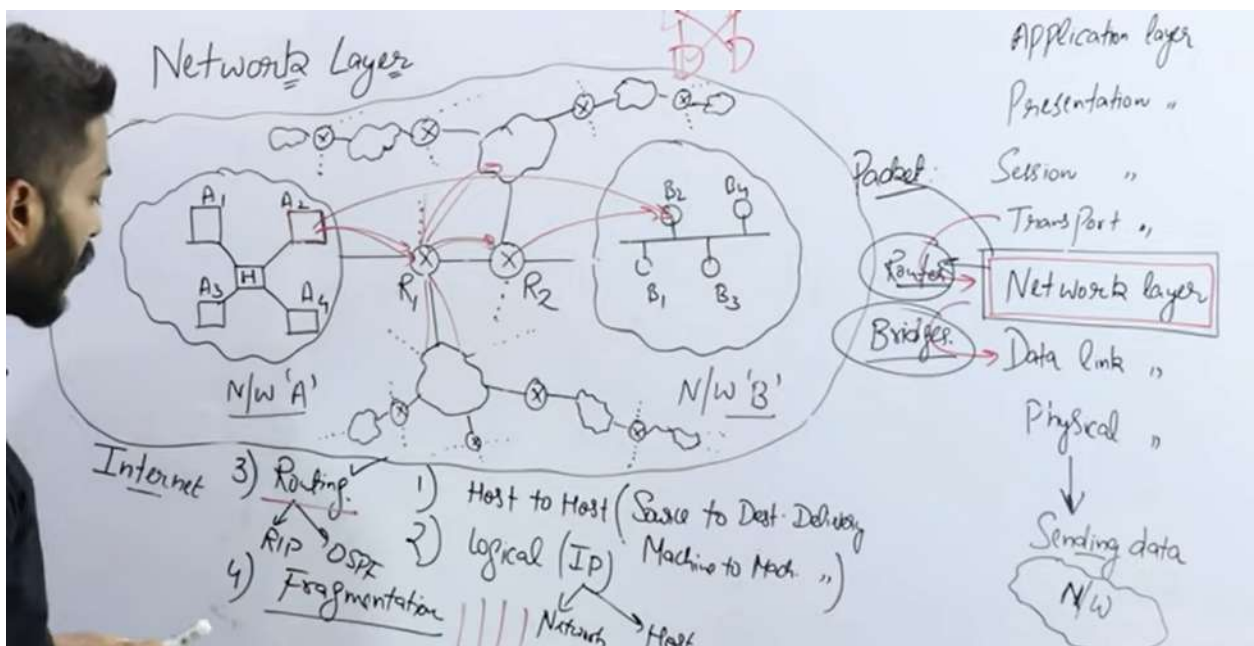 Network Layer
A1
A2
A3
A4
H
R1
R2
B2
B4
B1
B3
N/W 'A'
N/W 'B'
Internet
3) Routing.
RIP
OSPF
4) Fragmentation
1) Host to Host (Source to Dest. Delivery
Machine to Mach. ")
2) Logical (IP)
Network
Host
Packet.
Router
Bridges.
Application layer
Presentation "
Session "
Transport "
Network layer
Data link "
Physical "
Sending data
N/W